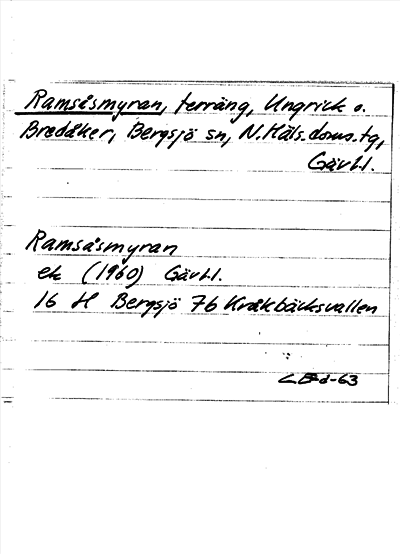 Ramsåsmyran, terräng, Ungrick o.
Bredåker, Bergsjö sn, N.Häls.doms.tg,
Gävl.l.
Ramsåsmyran
ek (1960) Gävl.l.
16 H Bergsjö 7b Kråkbäcksvallen
-63